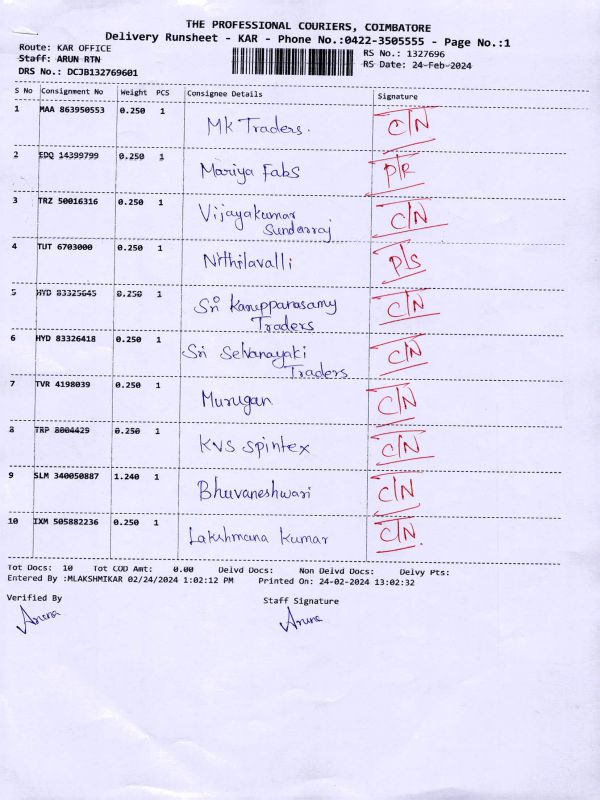 THE PROFESSIONAL COURIERS, COIMBATORE
Delivery Runsheet - KAR - Phone No.:0422-3505555 - Page No.:1
Route: KAR OFFICE RS No.: 1327696
Staff: ARUN RTN RS Date: 24-Feb-2024
DRS No.: DCJB132769601
S No Consignment No Weight PCS Consignee Details Signature
1 MAA 863950553 0.250 1 MK Traders. C/N
2 EDQ 14399799 0.250 1 Mariya Fabs P/R
3 TRZ 50016316 0.250 1 Vijayakumar C/N
Sundarraj
4 TUT 6703000 0.250 1 Nithilavalli P/S
5 HYD 83325645 0.250 1 Sri Karupparasamy C/N
Traders
6 HYD 83326418 0.250 1 Sri Selvanayaki C/N
Traders
7 TVR 4198039 0.250 1 Murugan C/N
8 TRP 8004429 0.250 1 KVS Spintex C/N
9 SLM 340050887 1.240 1 Bhuvaneshwari C/N
10 IXM 505882236 0.250 1 Lakshmana Kumar C/N.
Tot Docs: 10 Tot COD Amt: 0.00 Delvd Docs: Non Delvd Docs: Delvy Pts:
Entered By :MLAKSHMIKAR 02/24/2024 1:02:12 PM Printed On: 24-02-2024 13:02:32
Verified By Staff Signature
Aruna Aruna